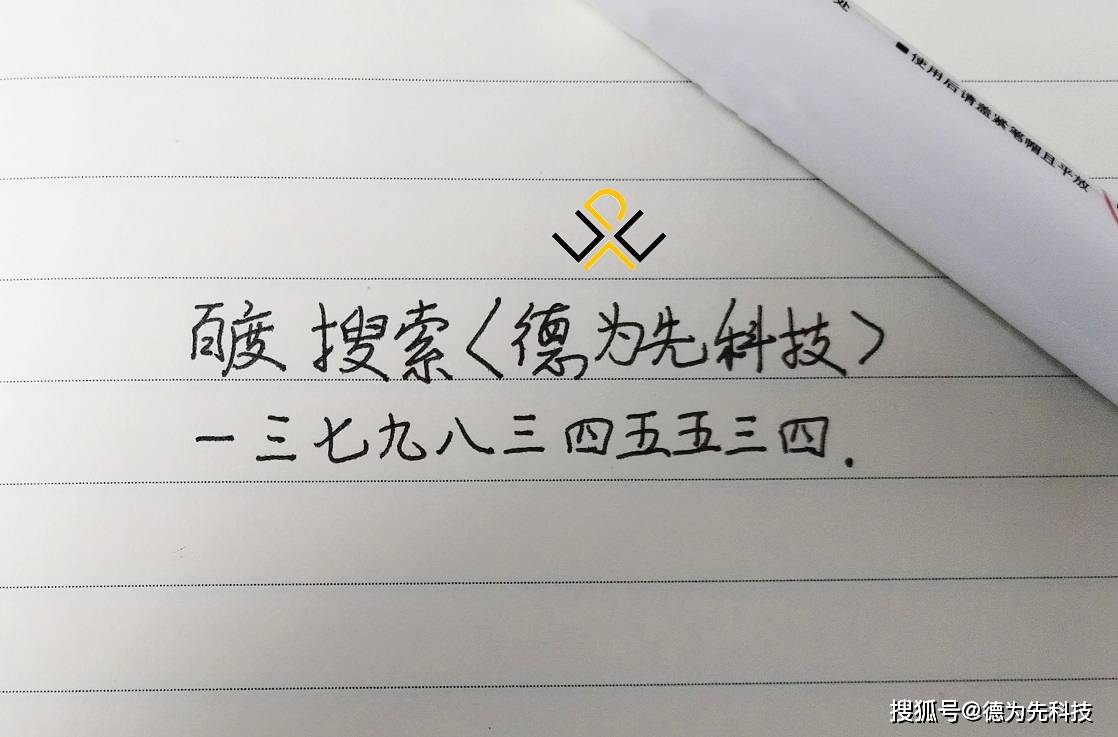 处
■使用后请盖紧笔帽且平放
百度 搜索〈德为先科技〉
一三七九八三四五五三四.
搜狐号@德为先科技